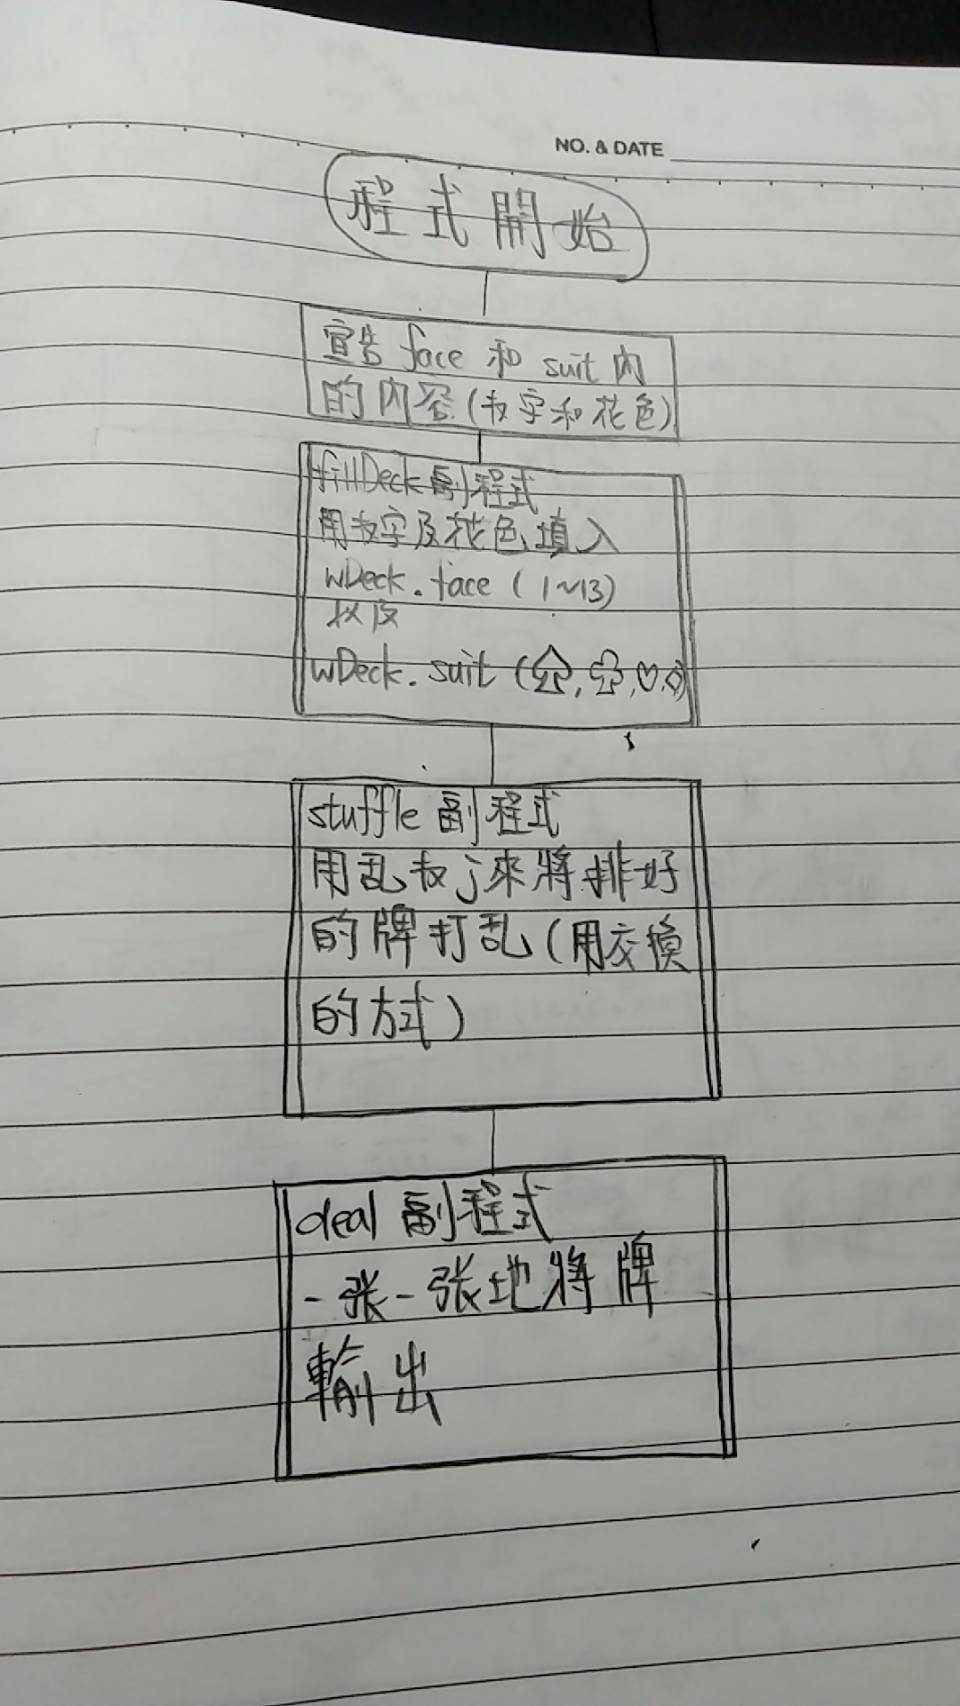 NO. & DATE
程式開始
宣告 face 和 suit 內
的內容(数字和花色)
fillDeck 副程式
用数字及花色填入
wDeck.face (1~13)
以及
wDeck.suit (♤,♧,♡,♢)
stuffle 副程式
用乱数j來將排好
的牌打乱(用交換
的方式)
deal 副程式
一张一张地將牌
輸出